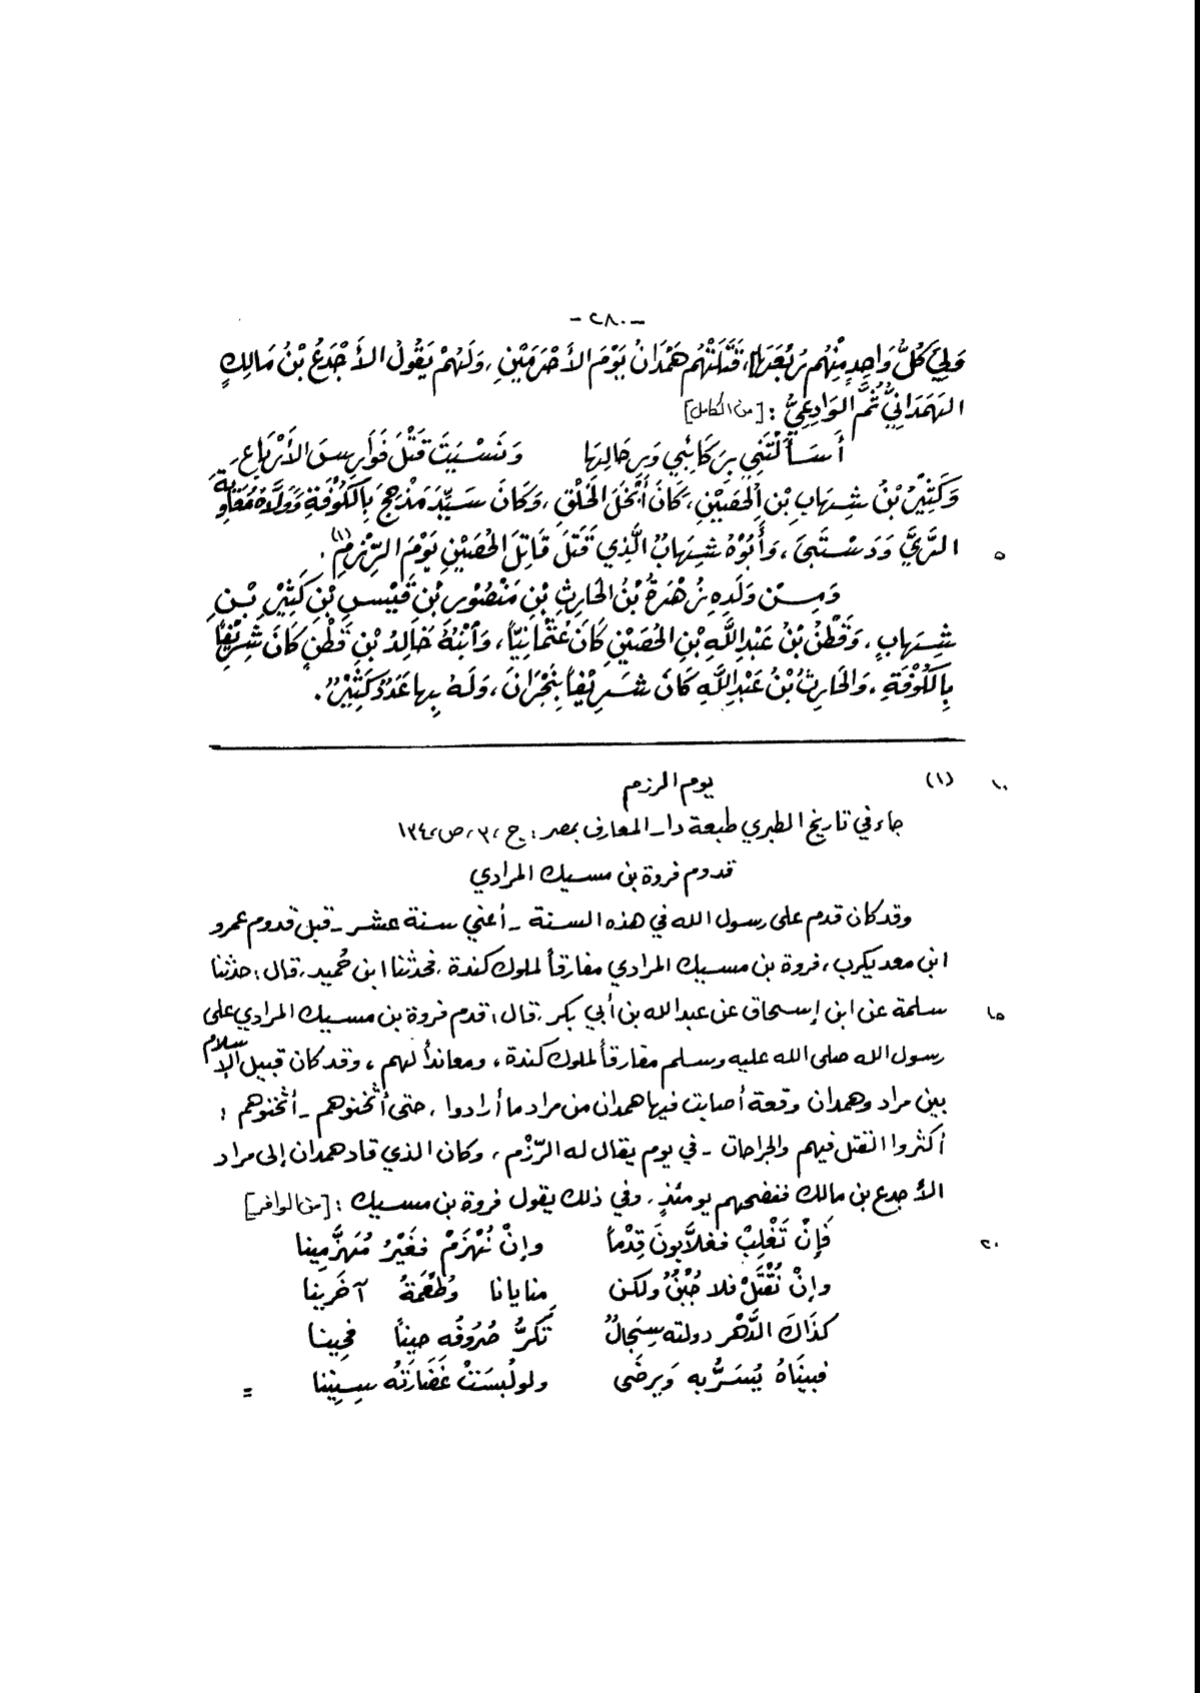 -٢٨٠-
وَلِيَ كُلُّ وَاحِدٍ مِنْهُم رُبْعَهَا، قَتَلَتْهُم هَمْدَانُ يَوْمَ الأَحْرَمَيْنِ، وَلَهُمْ يَقُولُ الأَجْدَعُ بْنُ مَالِكٍ
الهَمَدَانِيُّ ثُمَّ الوَادِعِيُّ : [من الكامل]
أَسَأَلْتَنِي بِرَكَائِبِي وَرِحَالِهَا وَنَسْيَتَ قَتْلَ فَوَارِسَ الأَرْبَاعِ
وَكَثِيْرُ بْنُ شِهَابِ بْنِ الحُصَيْنِ، كَانَ أَبْخَلَ الخَلْقِ، وَكَانَ سَيِّدَ مَذْحِجَ بِالكُوْفَةِ وَوَلَّاهُ مُعَاوِيَةُ
٥ الرَّيَّ وَدَسْتَبَىَ، وَأَبُوْهُ شِهَابُ الَّذِي قَتَلَ قَاتِلَ الحُصَيْنِ يَوْمَ الرِّزْمِ(١).
وَمِنْ وَلَدِهِ زُهْرَةُ بْنُ الحَارِثِ بْنِ مَنْصُوْرِ بْنِ قَيْسِ بْنِ كَثِيْرِ بْنِ
شِهَابٍ، وَقَطَنُ بْنُ عَبْدِ اللَّهِ بْنِ الحُصَيْنِ كَانَ عُثْمَانِيّاً، وَابْنُهُ خَالِدُ بْنِ قَطَنٍ كَانَ شَرِيْفاً
بِالكُوْفَةِ، وَالحَارِثُ بْنُ عَبْدِ اللَّهِ كَانَ شَرِيْفاً بِنَجْرَانَ، وَلَهُ بِهَا عَدَدٌ كَثِيْرٌ.
١٠ (١) يوم الرزم
جاء في تاريخ الطبري طبعة دار المعارف بمصر : ج ،٣، ص ،١٣٤
قدوم فروة بن مسيك المرادي
وقد كان قدم على رسول الله في هذه السنة - أعني سنة عشر - قبل قدوم عمرو
ابن معديكرب، فروة بن مسيك المرادي مفارقاً لملوك كندة، فحدثنا ابن حُميد، قال: حدثنا
١٥ سلمة عن ابن إسحاق عن عبد الله بن أبي بكر، قال: قدم فروة بن مسيك المرادي على
رسول الله صلى الله عليه وسلم مفارقاً لملوك كندة، ومعانداً لهم، وقد كان قبيل الإسلام
بين مراد وهمدان وقعة أصابت فيها همدان من مراد ما أرادوا، حتى أثخنوهم - أثخنوهم :
أكثروا القتل فيهم والجراحات - في يوم يقال له الرّزْم، وكان الذي قاد همدان إلى مراد
الأجدع بن مالك ففضحهم يومئذٍ، وفي ذلك يقول فروة بن مسيك : [من الوافر]
٢٠ فَإِنْ تَغْلِبْ فغلاَّبونَ قِدْماً وإنْ نُهْزَمْ فغَيْرُ مُهَزَّمِينا
وإنْ نُقْتَلْ فلا جُبْنٌ ولكن منايانا وطُعْمَةُ آخَرِينا
كذَاكَ الدَّهْر دولته سِجَالٌ تَكرُّ صُرُوفُه حيناً فحِينا
فبينَاهُ يُسَرُّ به وَيرضَى ولو لُبسَتْ غَضَارَتُه سِنِينا
=